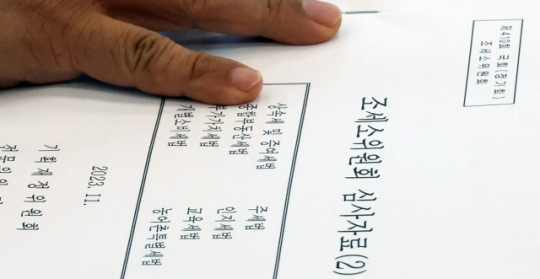 제410회 국회(정기회)
조세소위원회
조세소위원회 심사자료(2)
상속세 및 증여세법
종합부동산세법
부가가치세법
개별소비세법
주세법
인지세법
교육세법
농어촌특별세법
2023. 11.
기획재정위원회